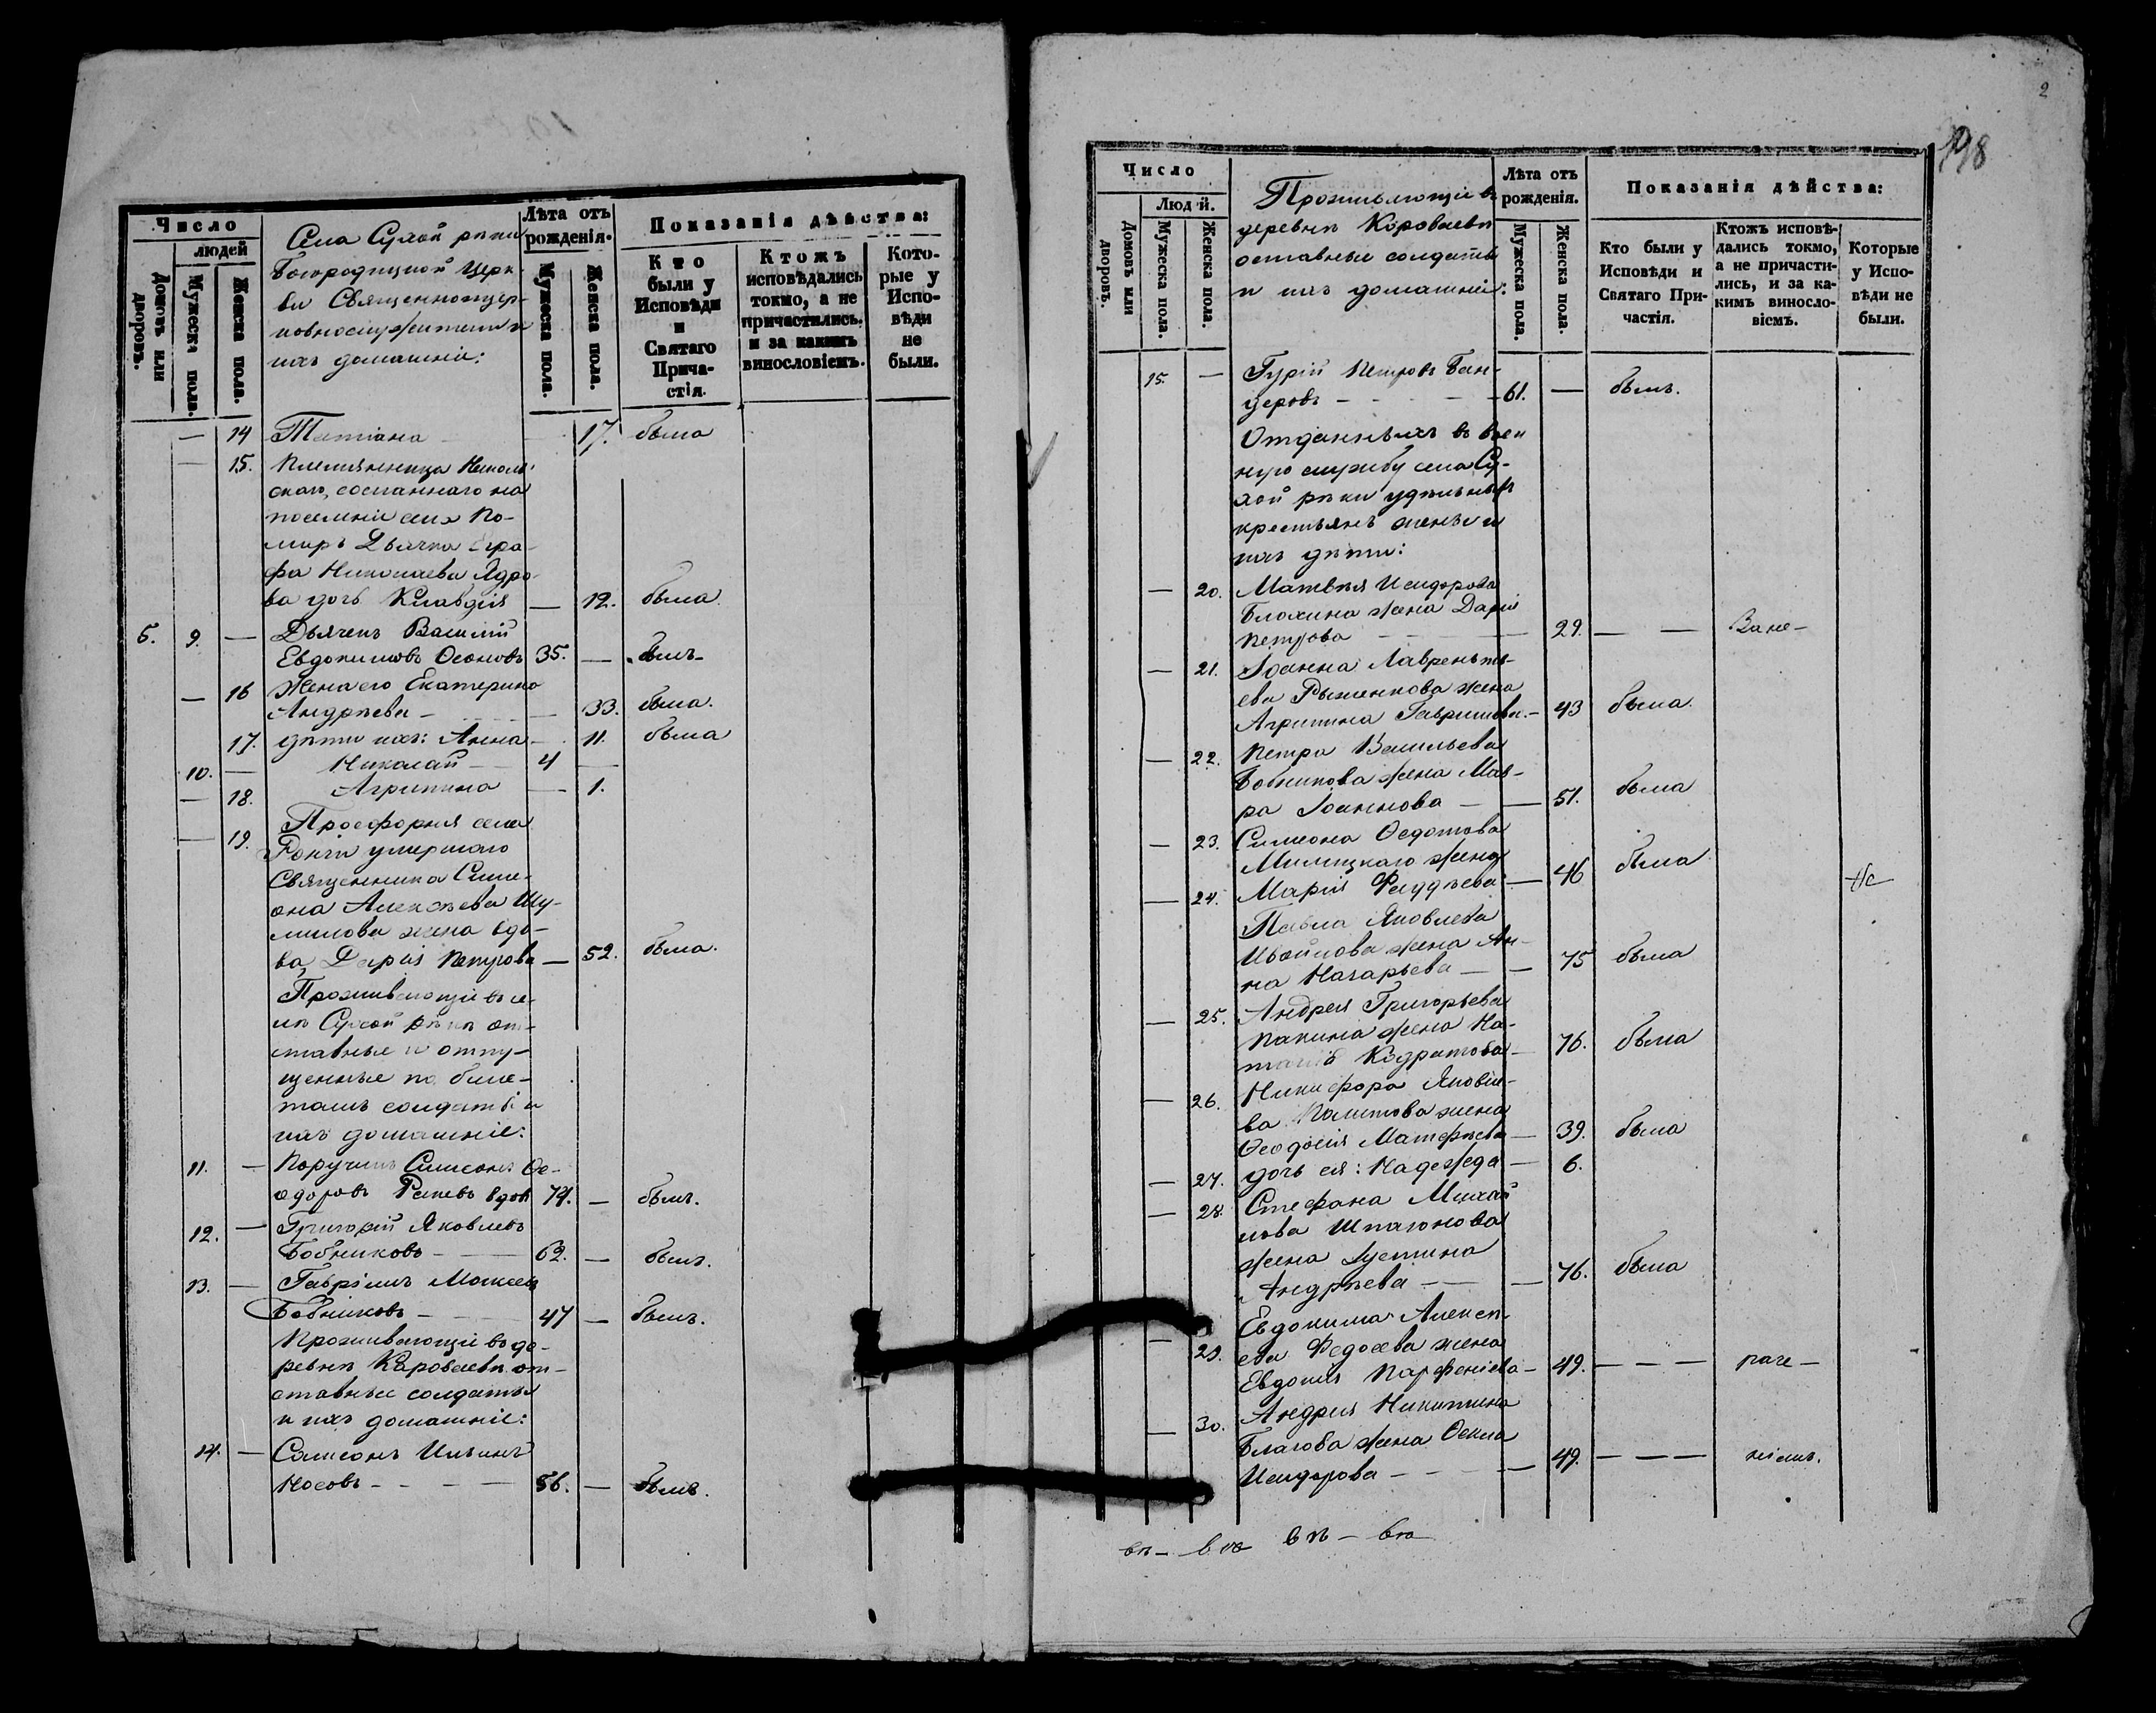 Число
людей
Домовъ или дворовъ.
Мужеска пола.
Женска пола.
Села Сухой рѣки
Богородицкой Церк-
ви Священноцер-
ковнослужители и
ихъ домашніе:
Лѣта отъ рожденія.
Мужеска пола.
Женска пола.
Показанія дѣйства:
Кто были у Исповѣди и Святаго Прича-стія.
Ктожъ исповѣдались токмо, а не причастились. и за какимъ винословіемъ.
Кото-рые у Испо-вѣди не были.
— 14 Татіана — 17. была
— 15. Племянница Николь-
скаго, сосланнаго на
поселеніе села По-
миръ Дьячка Егра-
фа Николаева Ядро-
ва дочь Клавдія — 12. была.
5. 9. — Дьячекъ Василій
Евдокимовъ Осоновъ 35. — былъ
— 16 Жена его Екатерина
Андрѣева — 33. была.
17. дѣти ихъ: Анна — 11. была
10. — Николай — 4 —
— 18. Агрипина — 1.
— 19. Просфорня села
умершаго
Священника Симе-
она Алексѣева Шу-
милова жена вдо-
ва, Дарія Петрова — 52. была.
Проживающіе въ се-
лѣ Сухой рѣкѣ от-
ставные и отпу-
щенные по биле-
тамъ солдаты и
ихъ домашніе:
11. — Поручикъ Симеонъ Ѳе-
одоровъ вдов 74. — былъ.
12. — Григорій Яковлевъ
Бобниковъ — 62. — былъ.
13. — Гавріилъ Моисеев
Бобниковъ — 47 — былъ.
Проживающіе въ де-
ревнѣ Короваевѣ от-
ставные солдаты
и ихъ домашніе:
14. — Самсонъ Ильинъ
Носовъ — 56. — былъ.
2
198
Число
Людей.
Домовъ или дворовъ.
Мужеска пола.
Женска пола.
Проживающіе въ
деревнѣ Короваевѣ
оставные солдаты
и ихъ домашніе:
Лѣта отъ рожденія.
Мужеска пола.
Женска пола.
Показанія дѣйства:
Кто были у Исповѣди и Святаго При-частія.
Ктожъ исповѣ-дались токмо, а не причасти-лись, и за ка-кимъ винословіемъ.
Которые у Испо-вѣди не были.
15. — Гурій Петровъ Бан-
церовъ — 61. — былъ.
Отданныхъ въ воен
ную службу села Су-
хой рѣки удѣльныхъ
крестьянъ жены и
ихъ дѣти:
— 20. Матвѣя Исидорова
Блохина жена Дарія
Петрова — 29. — — За не-
— 21. Іоанна Лавренть-
ева Рыженкова жена
Агрипина Гаврилова — 43 была.
— 22. Петра Васильева
Бобникова жена Мав-
ра Іоаннова — 51. была
— 23. Симеона Ѳедотова
Милицкаго жена
— 24. Марія Фаддѣева — 46 была
Не
Павла Яковлева
жена Ан-
на Назарьева — 75 была
— 25. Андрея Григорьева
Папина жена На-
талія Кодратова — 76. была
— 26. Никифора Яковле-
ва жена
Ѳеодосія Матфѣева — 39. была
— 27. дочь ея: Надежда — 6.
— 28. Стефана Михай
лова Шпагонова
жена Іустина
Андрѣева — 76. была
— 29. Евдокима Алексѣ-
ева Ѳедосѣева жена
Евдокія Парфеніева — 49. — — — раче-
— 30. Андрея Никитина
Благова жена Ѳекла
Исидорова — 49. — — — ніемъ.